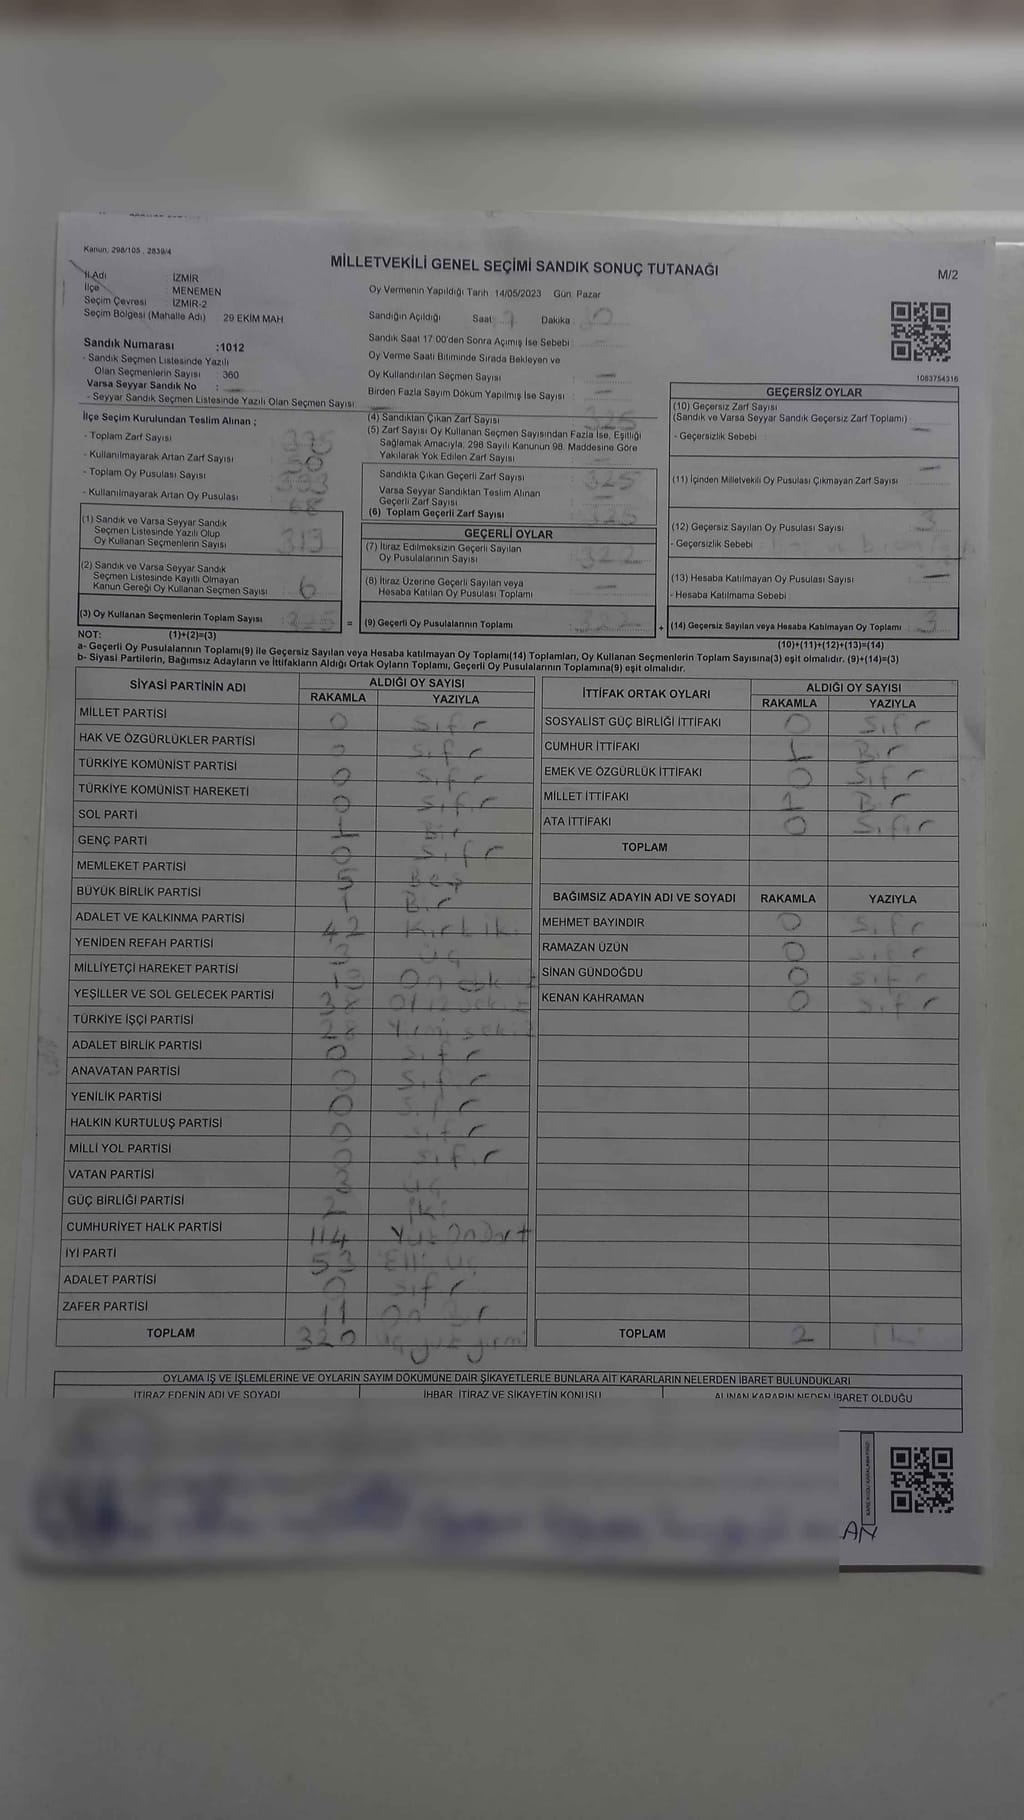 Kanun: 298/105 , 2839/4
MİLLETVEKİLİ GENEL SEÇİMİ SANDIK SONUÇ TUTANAĞI
M/2
İl Adı İZMİR
İlçe MENEMEN
Seçim Çevresi İZMİR-2
Seçim Bölgesi (Mahalle Adı) 29 EKİM MAH.
Oy Vermenin Yapıldığı Tarih 14/05/2023 Gün Pazar
Sandığın Açıldığı Saat: 7 Dakika
Sandık Saat 17:00'den Sonra Açımış İse Sebebi
Oy Verme Saati Bitiminde Sırada Bekleyen ve
Oy Kullandırılan Seçmen Sayısı : —
Birden Fazla Sayım Döküm Yapılmış İse Sayısı : —
Sandık Numarası :1012
- Sandık Seçmen Listesinde Yazılı
Olan Seçmenlerin Sayısı : 360
Varsa Seyyar Sandık No :
- Seyyar Sandık Seçmen Listesinde Yazılı Olan Seçmen Sayısı:
1063754316
İlçe Seçim Kurulundan Teslim Alınan ;
- Toplam Zarf Sayısı
- Kullanılmayarak Artan Zarf Sayısı
- Toplam Oy Pusulası Sayısı
- Kullanılmayarak Artan Oy Pusulası
(1) Sandık ve Varsa Seyyar Sandık
Seçmen Listesinde Yazılı Olup
Oy Kullanan Seçmenlerin Sayısı : 313
(2) Sandık ve Varsa Seyyar Sandık
Seçmen Listesinde Kayıtlı Olmayan
Kanun Gereği Oy Kullanan Seçmen Sayısı : 6
(3) Oy Kullanan Seçmenlerin Toplam Sayısı : 325
(4) Sandıktan Çıkan Zarf Sayısı : 325
(5) Zarf Sayısı Oy Kullanan Seçmen Sayısından Fazla İse, Eşitliği
Sağlamak Amacıyla, 298 Sayılı Kanunun 98. Maddesine Göre
Yakılarak Yok Edilen Zarf Sayısı : —
Sandıkta Çıkan Geçerli Zarf Sayısı : 325
Varsa Seyyar Sandıktan Teslim Alınan
Geçerli Zarf Sayısı : —
(6) Toplam Geçerli Zarf Sayısı : 325
GEÇERLİ OYLAR
(7) İtiraz Edilmeksizin Geçerli Sayılan
Oy Pusulalarının Sayısı : 322
(8) İtiraz Üzerine Geçerli Sayılan veya
Hesaba Katılan Oy Pusulası Toplamı : —
= (9) Geçerli Oy Pusulalarının Toplamı : 322
GEÇERSİZ OYLAR
(10) Geçersiz Zarf Sayısı
(Sandık ve Varsa Seyyar Sandık Geçersiz Zarf Toplamı) : —
- Geçersizlik Sebebi :
(11) İçinden Milletvekili Oy Pusulası Çıkmayan Zarf Sayısı : —
(12) Geçersiz Sayılan Oy Pusulası Sayısı : 3
- Geçersizlik Sebebi :
(13) Hesaba Katılmayan Oy Pusulası Sayısı : —
- Hesaba Katılmama Sebebi :
+ (14) Geçersiz Sayılan veya Hesaba Katılmayan Oy Toplamı : 3
NOT: (1)+(2)=(3) (10)+(11)+(12)+(13)=(14)
a- Geçerli Oy Pusulalarının Toplamı(9) ile Geçersiz Sayılan veya Hesaba katılmayan Oy Toplamı(14) Toplamları, Oy Kullanan Seçmenlerin Toplam Sayısına(3) eşit olmalıdır. (9)+(14)=(3)
b- Siyasi Partilerin, Bağımsız Adayların ve İttifakların Aldığı Ortak Oyların Toplamı, Geçerli Oy Pusulalarının Toplamına(9) eşit olmalıdır.
SİYASİ PARTİNİN ADI ALDIĞI OY SAYISI
RAKAMLA YAZIYLA
MİLLET PARTİSİ 0 Sıfır
HAK VE ÖZGÜRLÜKLER PARTİSİ 0 Sıfır
TÜRKİYE KOMÜNİST PARTİSİ 0 Sıfır
TÜRKİYE KOMÜNİST HAREKETİ 0 Sıfır
SOL PARTİ 1 Bir
GENÇ PARTİ 0 Sıfır
MEMLEKET PARTİSİ 5 Beş
BÜYÜK BİRLİK PARTİSİ 1 Bir
ADALET VE KALKINMA PARTİSİ 42 Kırk iki
YENİDEN REFAH PARTİSİ 3 Üç
MİLLİYETÇİ HAREKET PARTİSİ
YEŞİLLER VE SOL GELECEK PARTİSİ 38 Otuz sekiz
TÜRKİYE İŞÇİ PARTİSİ 28 Yirmi sekiz
ADALET BİRLİK PARTİSİ 0 Sıfır
ANAVATAN PARTİSİ 0 Sıfır
YENİLİK PARTİSİ 0 Sıfır
HALKIN KURTULUŞ PARTİSİ 0 Sıfır
MİLLİ YOL PARTİSİ 0 Sıfır
VATAN PARTİSİ 3 Üç
GÜÇ BİRLİĞİ PARTİSİ 2 İki
CUMHURİYET HALK PARTİSİ 114 Yüz Ondört
İYİ PARTİ 53 Elli üç
ADALET PARTİSİ 0 Sıfır
ZAFER PARTİSİ 11 On Bir
TOPLAM 320 üç yüz yirmi
İTTİFAK ORTAK OYLARI ALDIĞI OY SAYISI
RAKAMLA YAZIYLA
SOSYALİST GÜÇ BİRLİĞİ İTTİFAKI 0 Sıfır
CUMHUR İTTİFAKI 1 Bir
EMEK VE ÖZGÜRLÜK İTTİFAKI 0 Sıfır
MİLLET İTTİFAKI 1 Bir
ATA İTTİFAKI 0 Sıfır
TOPLAM
BAĞIMSIZ ADAYIN ADI VE SOYADI RAKAMLA YAZIYLA
MEHMET BAYINDIR 0 Sıfır
RAMAZAN ÜZÜN 0 Sıfır
SİNAN GÜNDOĞDU 0 Sıfır
KENAN KAHRAMAN 0 Sıfır
TOPLAM 2 İki
OYLAMA İŞ VE İŞLEMLERİNE VE OYLARIN SAYIM DÖKÜMÜNE DAİR ŞİKAYETLERLE BUNLARA AİT KARARLARIN NELERDEN İBARET BULUNDUKLARI
İTİRAZ EDENİN ADI VE SOYADI İHBAR, İTİRAZ VE ŞİKAYETİN KONUSU ALINAN KARARIN NEDEN İBARET OLDUĞU
AN